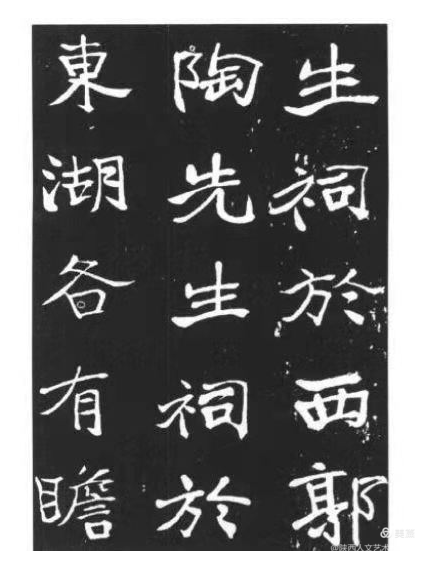 生祠於西郭
陶先生祠於
東湖各有瞻
@陕西人文艺术